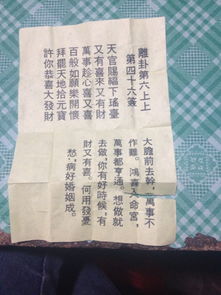 離卦第六上上
第四十六簽
天官賜福下瑤臺
又有喜來又有財
萬事趁心喜又喜
百般如願樂開懷
拜罷天地拾元寶
許你恭喜大發財
大膽前去幹，萬事不
作難。鴻喜入命宮，
萬事都亨通。想做就
去做，你有好時候；有
財又有喜。何用發憂
愁，病好婚姻成。